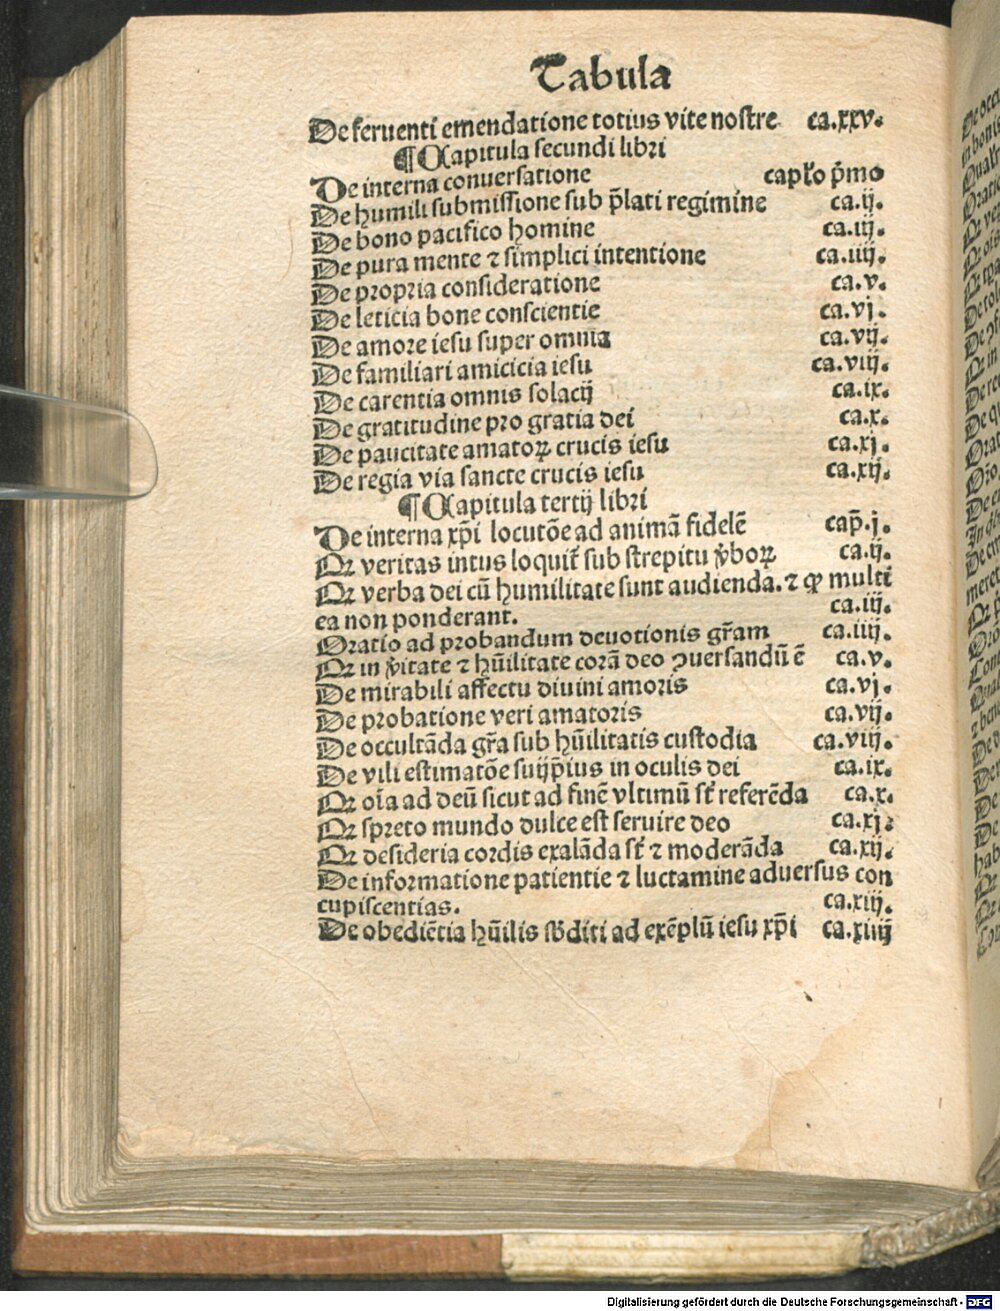 Tabula
De feruenti emendatione totius vite nostre ca.xxv.
¶ Capitula secundi libri
De interna conuersatione capľo p̄mo
De humili submissione sub p̄lati regimine ca.ij.
De bono pacifico homine ca.iij.
De pura mente ⁊ simplici intentione ca.iiij.
De propria consideratione ca.v.
De leticia bone conscientie ca.vj.
De amore iesu super omnia ca.vij.
De familiari amicicia iesu ca.viij.
De carentia omnis solacij ca.ix.
De gratitudine pro gratia dei ca.x.
De paucitate amatoꝝ crucis iesu ca.xj.
De regia via sancte crucis iesu ca.xij.
¶ Capitula tertij libri
De interna xp̄i locutōe ad animā fidelē cap̄.j.
Qꝛ veritas intus loquit̄ sub strepitu v̄boꝝ ca.ij.
Qꝛ verba dei cū humilitate sunt audienda. ⁊ ꝙ multi
ea non ponderant. ca.iij.
Oratio ad probandum deuotionis gr̄am ca.iiij.
Qꝛ in v̄itate ⁊ hūilitate corā deo ꝯuersandū ē ca.v.
De mirabili affectu diuini amoris ca.vj.
De probatione veri amatoris ca.vij.
De occultāda gr̄a sub hūilitatis custodia ca.viij.
De vili estimatōe suijp̄ius in oculis dei ca.ix.
Qꝛ oīa ad deū sicut ad finē vltimū st̄ referēda ca.x.
Qꝛ spreto mundo dulce est seruire deo ca.xj.
Qꝛ desideria cordis exalāda st̄ ⁊ moderāda ca.xij.
De informatione patientie ⁊ luctamine aduersus con
cupiscentias. ca.xiij.
De obediētia hūilis sb̄diti ad exēplū iesu xp̄i ca.xiiij
Digitalisierung gefördert durch die Deutsche Forschungsgemeinschaft - DFG